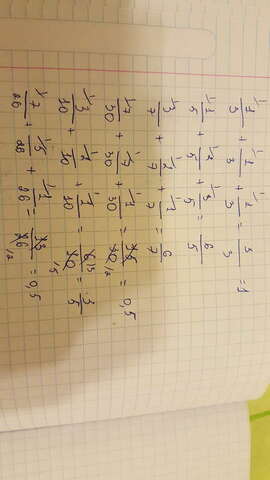 1/3 + 1/3 + 1/3 = 3/3 = 1
1/5 + 2/5 + 3/5 = 6/5
3/7 + 2/7 + 1/7 = 6/7
7/30 + 7/30 + 1/30 = 15/30 = 0,5
3/10 + 2/10 + 1/10 = 6/10 = 3/5
7/26 + 5/26 + 1/26 = 13/26 = 0,5